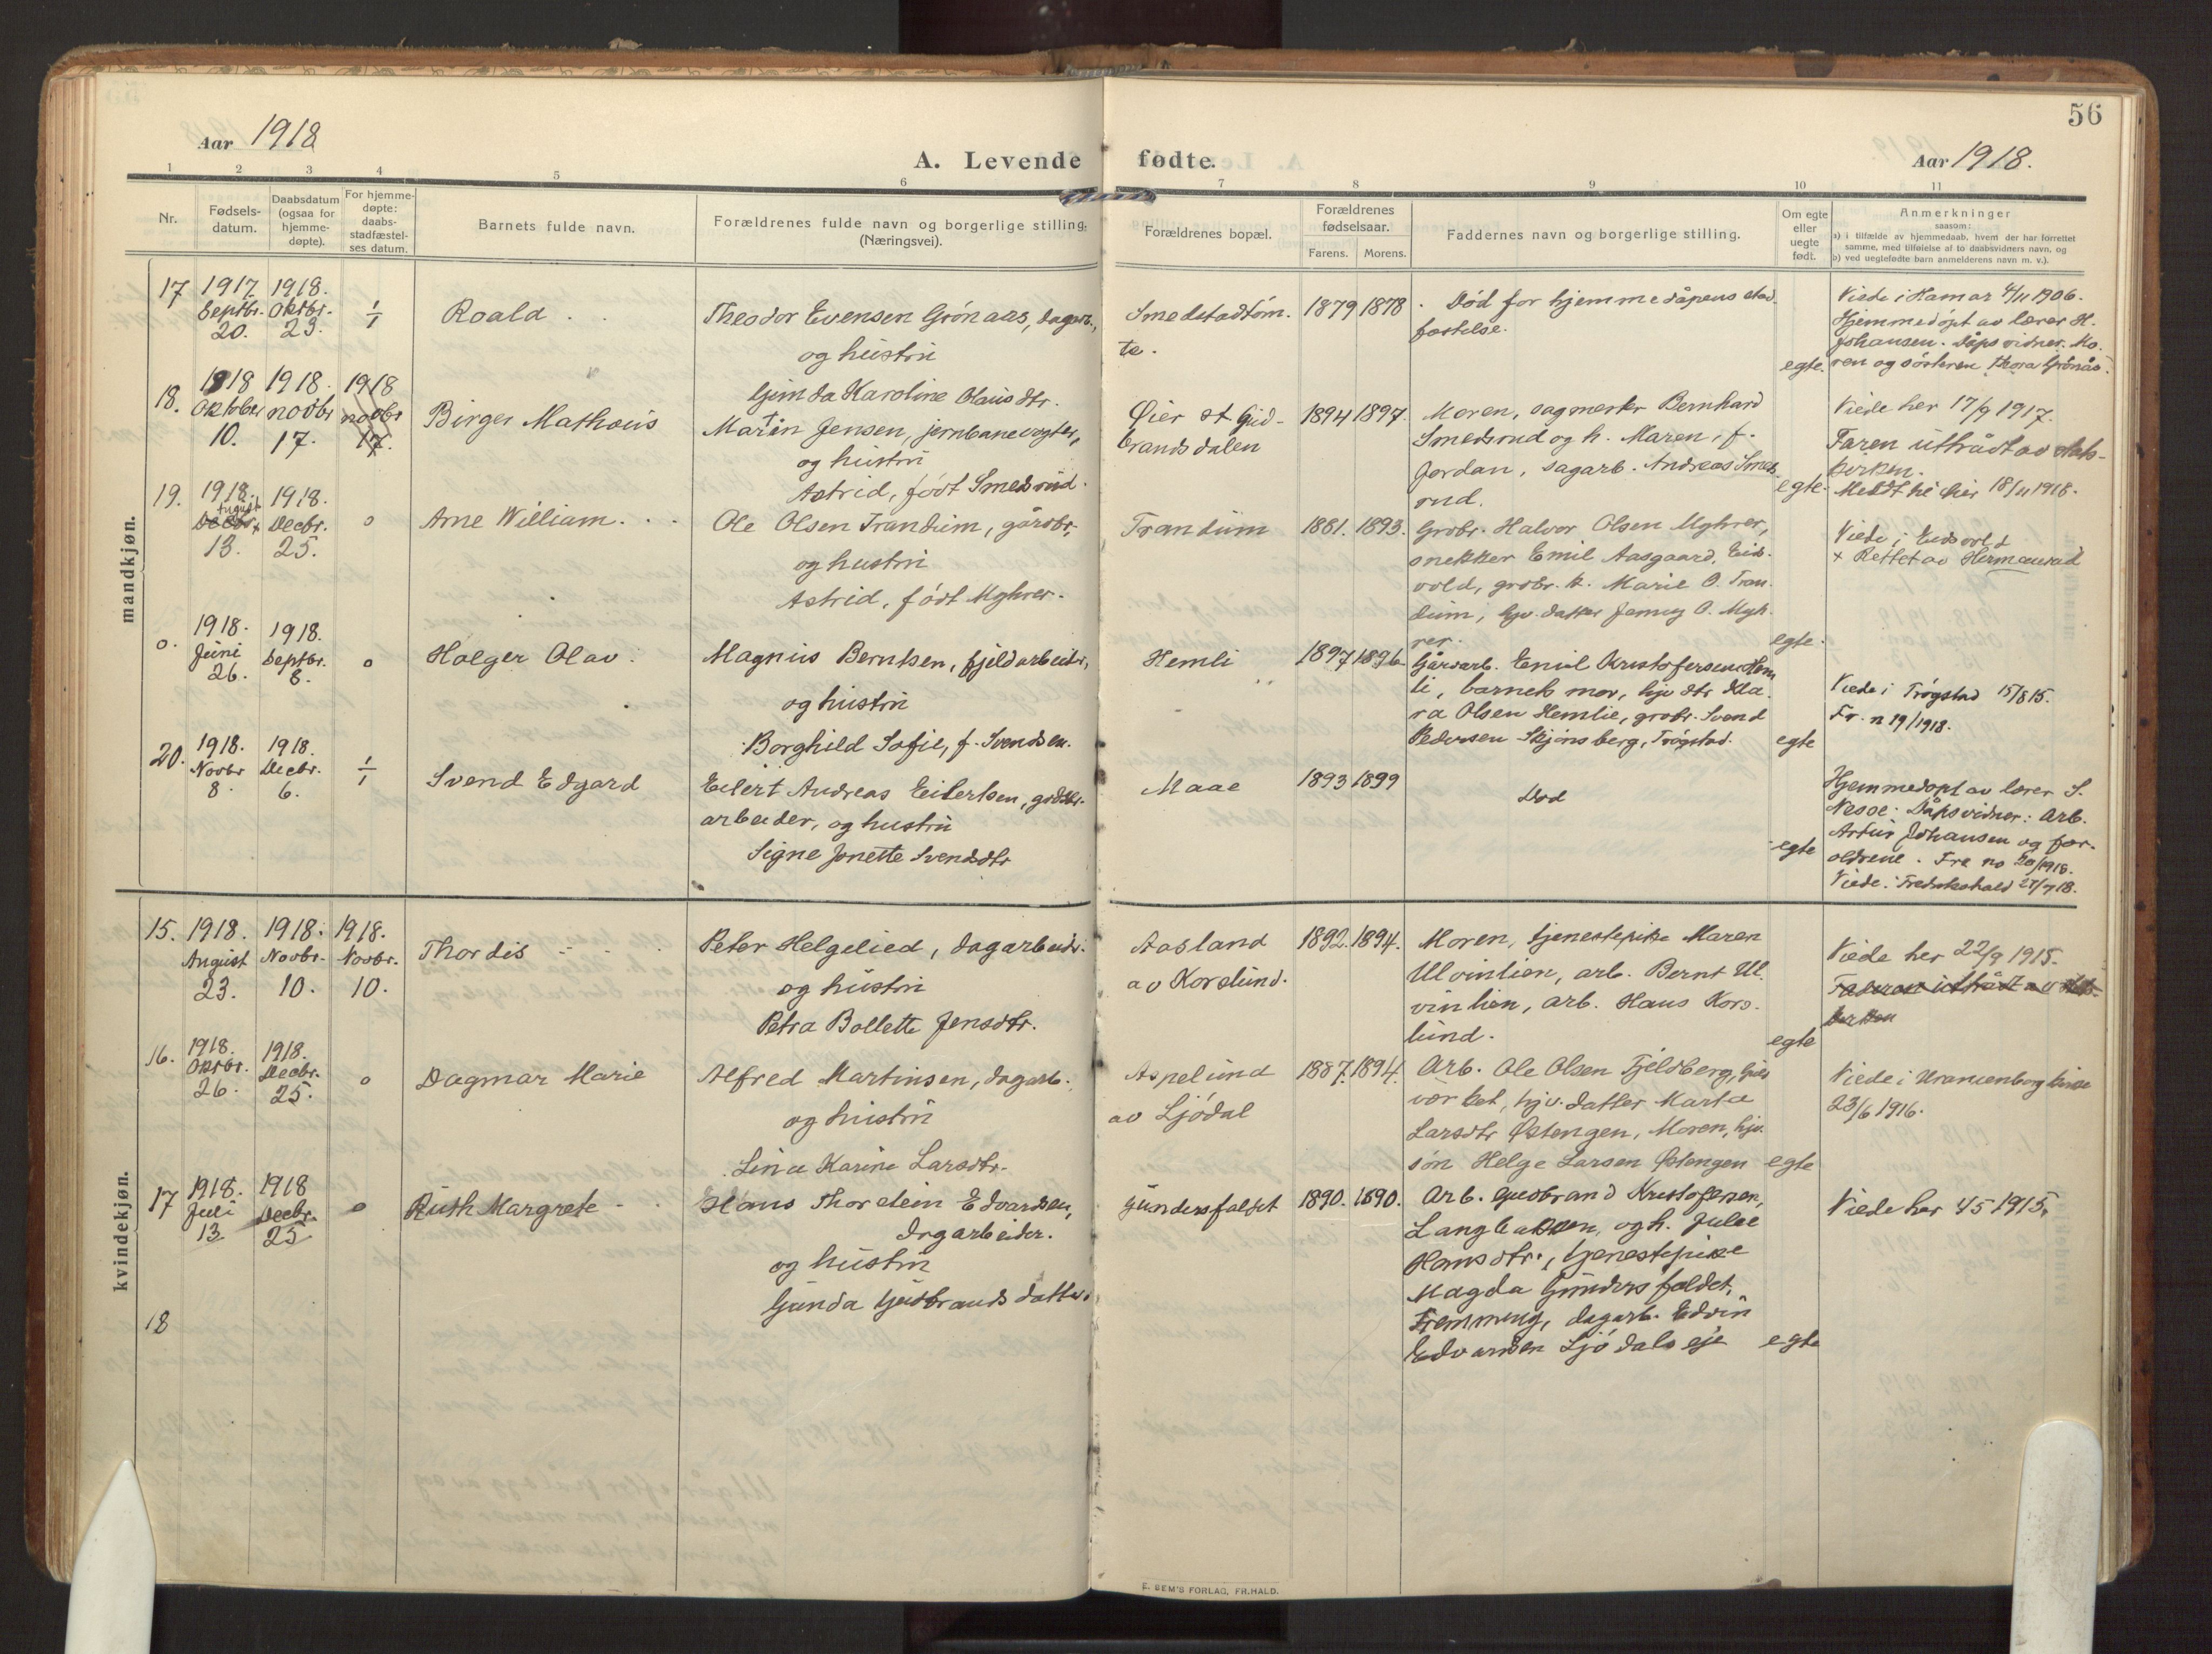 56
Aar 1918
A. Levende fødte.
Aar 1918.
1 2 3 4 5 6 7 8 9 10 11
Nr.
Fødsels-
datum.
Daabsdatum
(ogsaa for
hjemme-
døpte).
For hjemme-
døpte:
daabs-
stadfæstel-
ses datum.
Barnets fulde navn.
Forældrenes fulde navn og borgerlige stilling.
(Næringsvei).
Forældrenes bopæl.
Forældrenes
fødselsaar.
Farens. Morens.
Faddernes navn og borgerlige stilling.
Om egte
eller
uegte
født.
Anmerkninger
saasom:
a) i tilfælde av hjemmedaab, hvem der har forrettet
samme, med tilføielse af to daabsvidners navn, og
b) ved uegtefødte barn anmelderens navn m. v.).
mandkjøn.
17
1917
Septbr.
20.
1918.
Oktbr.
23.
1/1
Roald
Theodor Evensen Grönaas, dagarb.,
og hustru
Gunda Karoline Olausdtr.
Smedstadtom.
te.
1879 1878
Död for hjemmedåpens stad.
festelse.
egte.
Viede i Hamar 4/11 1906.
Hjemmedöpt av lærer H.
Johansen. Dåpsvidner. Mo.
ren og sösteren Thora Grönås.
18.
1918
Oktober
10.
1918.
novbr
17.
1918
novbr
17.
Birger Mathæus
Martin Jensen, jernbanevogter,
og hustru
Astrid, født Smedsrud.
Øier st Gud-
brandsdalen
1894 1897.
Moren, sagmester Bernhard
Smedsrud og h. Maren, f.
Jordan, sagarb. Andreas Smeds
rud.
egte.
Viede her 17/9 1917.
Faren uttrådt av stats-
kirken.
Meldt til Øier 18/11 1918.
19.
1918.
August
Decbr x
13.
1918.
Decbr.
25.
o
Arne William
Ole Olsen Trandum, gårdbr,
og hustru
Astrid, født Myhrer.
Trandum
1881. 1893.
Grdbr. Halvor Olsen Myhrer,
snekker Emil Aasgaard, Eids.
vold, grdbr. k. Marie O. Tran.
dum, hjv. datter Jenny O. Myh.
rer.
egte.
Viede i Eidsvold
x Rettet av
o.
1918.
Juni
26.
1918.
Septbr.
8.
o
Holger Olav
Magnus Berntsen, fjeldarbeider,
og hustru
Borghild Sofie, f. Svendsen.
Hemli
1897 1896
Gårdarb. Emil Kristofersen Hem
li, barnets mor, hjv dtr Kla.
ra Olsen Hemlie, grdbr. Svend
Pedersen Skjönsberg, Trögstad.
egte
Viede i Trögstad 15/8 15.
Fr. n 19/1918.
20.
1918.
Novbr
8.
1918.
Decbr.
6.
1/1
Svend Edgard
Eilert Andreas Eilertsen, godsbr.
arbeider, og hustru
Signe Jonette Svendsdtr
Maae
1893 1899
Död
egte
Hjemmedöpt av lærer S.
Nesöe. Dåpsvidner: Arb.
Artur Johansen og for.
ældrene. Fra no 20/1918.
Viede i Fredrikshald 27/7 18.
kvindekjøn.
15.
1918.
August
23.
1918.
Novbr.
10.
1918.
Novbr.
10.
Thordis
Peter Helgelied, dagarbeidr.
og hustru
Petra Bollette Jensdtr.
Aasland
av Korslund.
1892. 1894.
Moren, tjenestepike Maren
Ulvinlien, arb. Bernt Ul.
vinlien, arb. Hans Kors.
lund.
egte
Viede her 22/9 1915.
Faderen uttrådt av stats-
kirken
16.
1918.
Oktbr.
26.
1918.
Decbr.
25.
o
Dagmar Marie
Alfred Martinsen, dagarb.
og hustru
Lina Karine Larsdtr.
Aspelund
av Ljödal
1887. 1894.
Arb. Ole Olsen Fjeldberg, Guld
værket, hjv. datter Marta
Larsdtr Østengen, Moren, hjv.
sön Helge Larsen Østengen
egte
Viede i Uranienborg kirke
23/6 1916.
17
1918.
Juli
13.
1918
Decbr.
25
o
Ruth Margrete
Hans Thorstein Edvardsen,
dagarbeider.
og hustru
Gunda Gudbrandsdatter.
Gundersfaldet
1890. 1890.
Arb. Gudbrand Kristofersen,
Langbakken, og h. Julie
Hansdtr., tjenestepike
Magda Gundersfaldet,
Fremming, dagarb. Edvin
Edvardsen Ljödals eje
egte
Viede her 4 5 1915.
18
E. SEM'S FORLAG, FR.HALD.